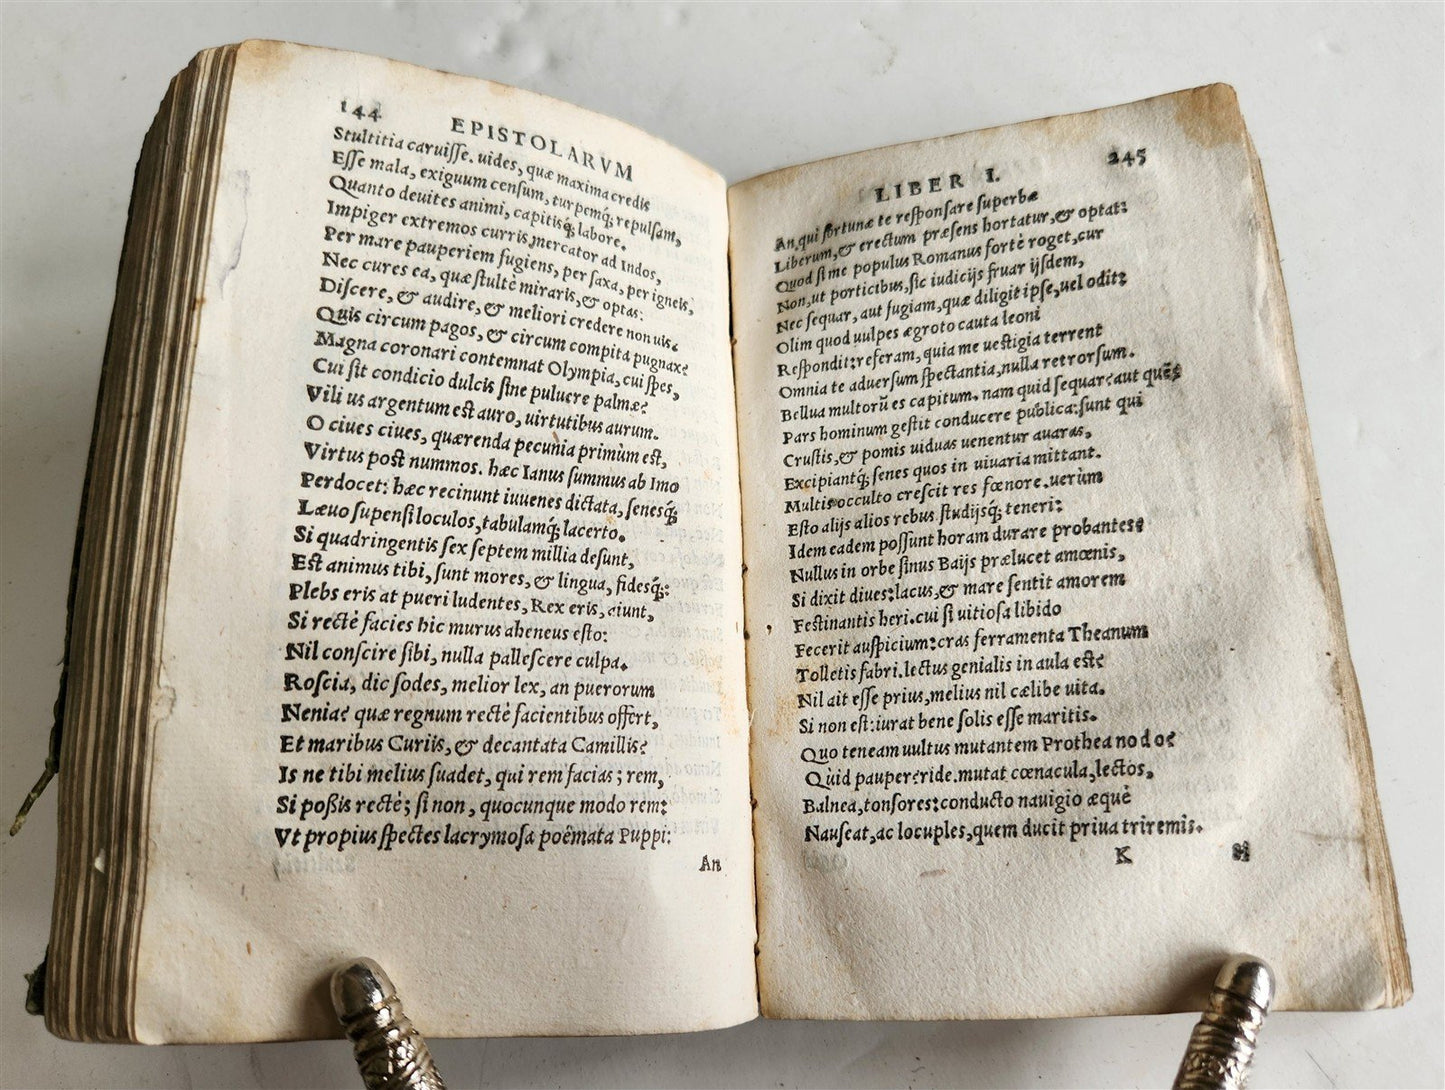 144
EPISTOLARVM
Stultitia caruisse. uides, quæ maxima credis
Esse mala, exiguum censum, turpemq́; repulsam,
Quanto deuites animi, capitisq́; labore.
Impiger extremos curris mercator ad Indos,
Per mare pauperiem fugiens, per saxa, per igneis,
Nec cures ea, quæ stultè miraris, & optas:
Discere, & audire, & meliori credere non uis.
Quis circum pagos, & circum compita pugnax?
Magna coronari contemnat Olympia, cui spes,
Cui sit condicio dulcis sine puluere palmæ?
Vili us argentum est auro, uirtutibus aurum.
O ciues ciues, quærenda pecunia primùm est,
Virtus post nummos. hæc Ianus summus ab Imo
Perdocet: hæc recinunt iuuenes dictata, senesq́;
Læuo supensi loculos, tabulamq́; lacerto.
Si quadringentis sex septem millia desunt,
Est animus tibi, sunt mores, & lingua, fidesq́;:
Plebs eris at pueri ludentes, Rex eris, aiunt,
Si rectè facies hic murus aheneus esto:
Nil conscire sibi, nulla pallescere culpa.
Roscia, dic sodes, melior lex, an puerorum
Nenia? quæ regnum rectè facientibus offert,
Et maribus Curiis, & decantata Camillis?
Is ne tibi melius suadet, qui rem facias; rem,
Si poßis rectè; si non, quocunque modo rem:
Vt propius spectes lacrymosa poëmata Puppi:
An
LIBER I.
245
An, qui fortunæ te responsare superbæ
Liberum, & erectum præsens hortatur, & optat:
Quod si me populus Romanus fortè roget, cur
Non, ut porticibus, sic iudicijs fruar ijsdem,
Nec sequar, aut fugiam, quæ diligit ipse, uel odit:
Olim quod uulpes ægroto cauta leoni
Respondit: referam, quia me uestigia terrent
Omnia te aduersum spectantia, nulla retrorsum.
Bellua multorū es capitum. nam quid sequar? aut quē?
Pars hominum gestit conducere publica: sunt qui
Crustis, & pomis uiduas uenentur auaras,
Excipiantq́; senes quos in uiuaria mittant.
Multis occulto crescit res fœnore. uerùm
Esto alijs alios rebus studijsq́; teneri:
Idem eadem possunt horam durare probantes?
Nullus in orbe sinus Baijs prælucet amœnis,
Si dixit diues: lacus, & mare sentit amorem
Festinantis heri. cui si uitiosa libido
Fecerit auspicium: cras ferramenta Theanum
Tolletis fabri. lectus genialis in aula est?
Nil ait esse prius, melius nil cælibe uita.
Si non est: iurat bene solis esse maritis.
Quo teneam uultus mutantem Prothea nodo?
Quid pauper? ride. mutat cœnacula, lectos,
Balnea, tonsores: conducto nauigio æquè
Nauseat, ac locuples, quem ducit priua triremis.
K